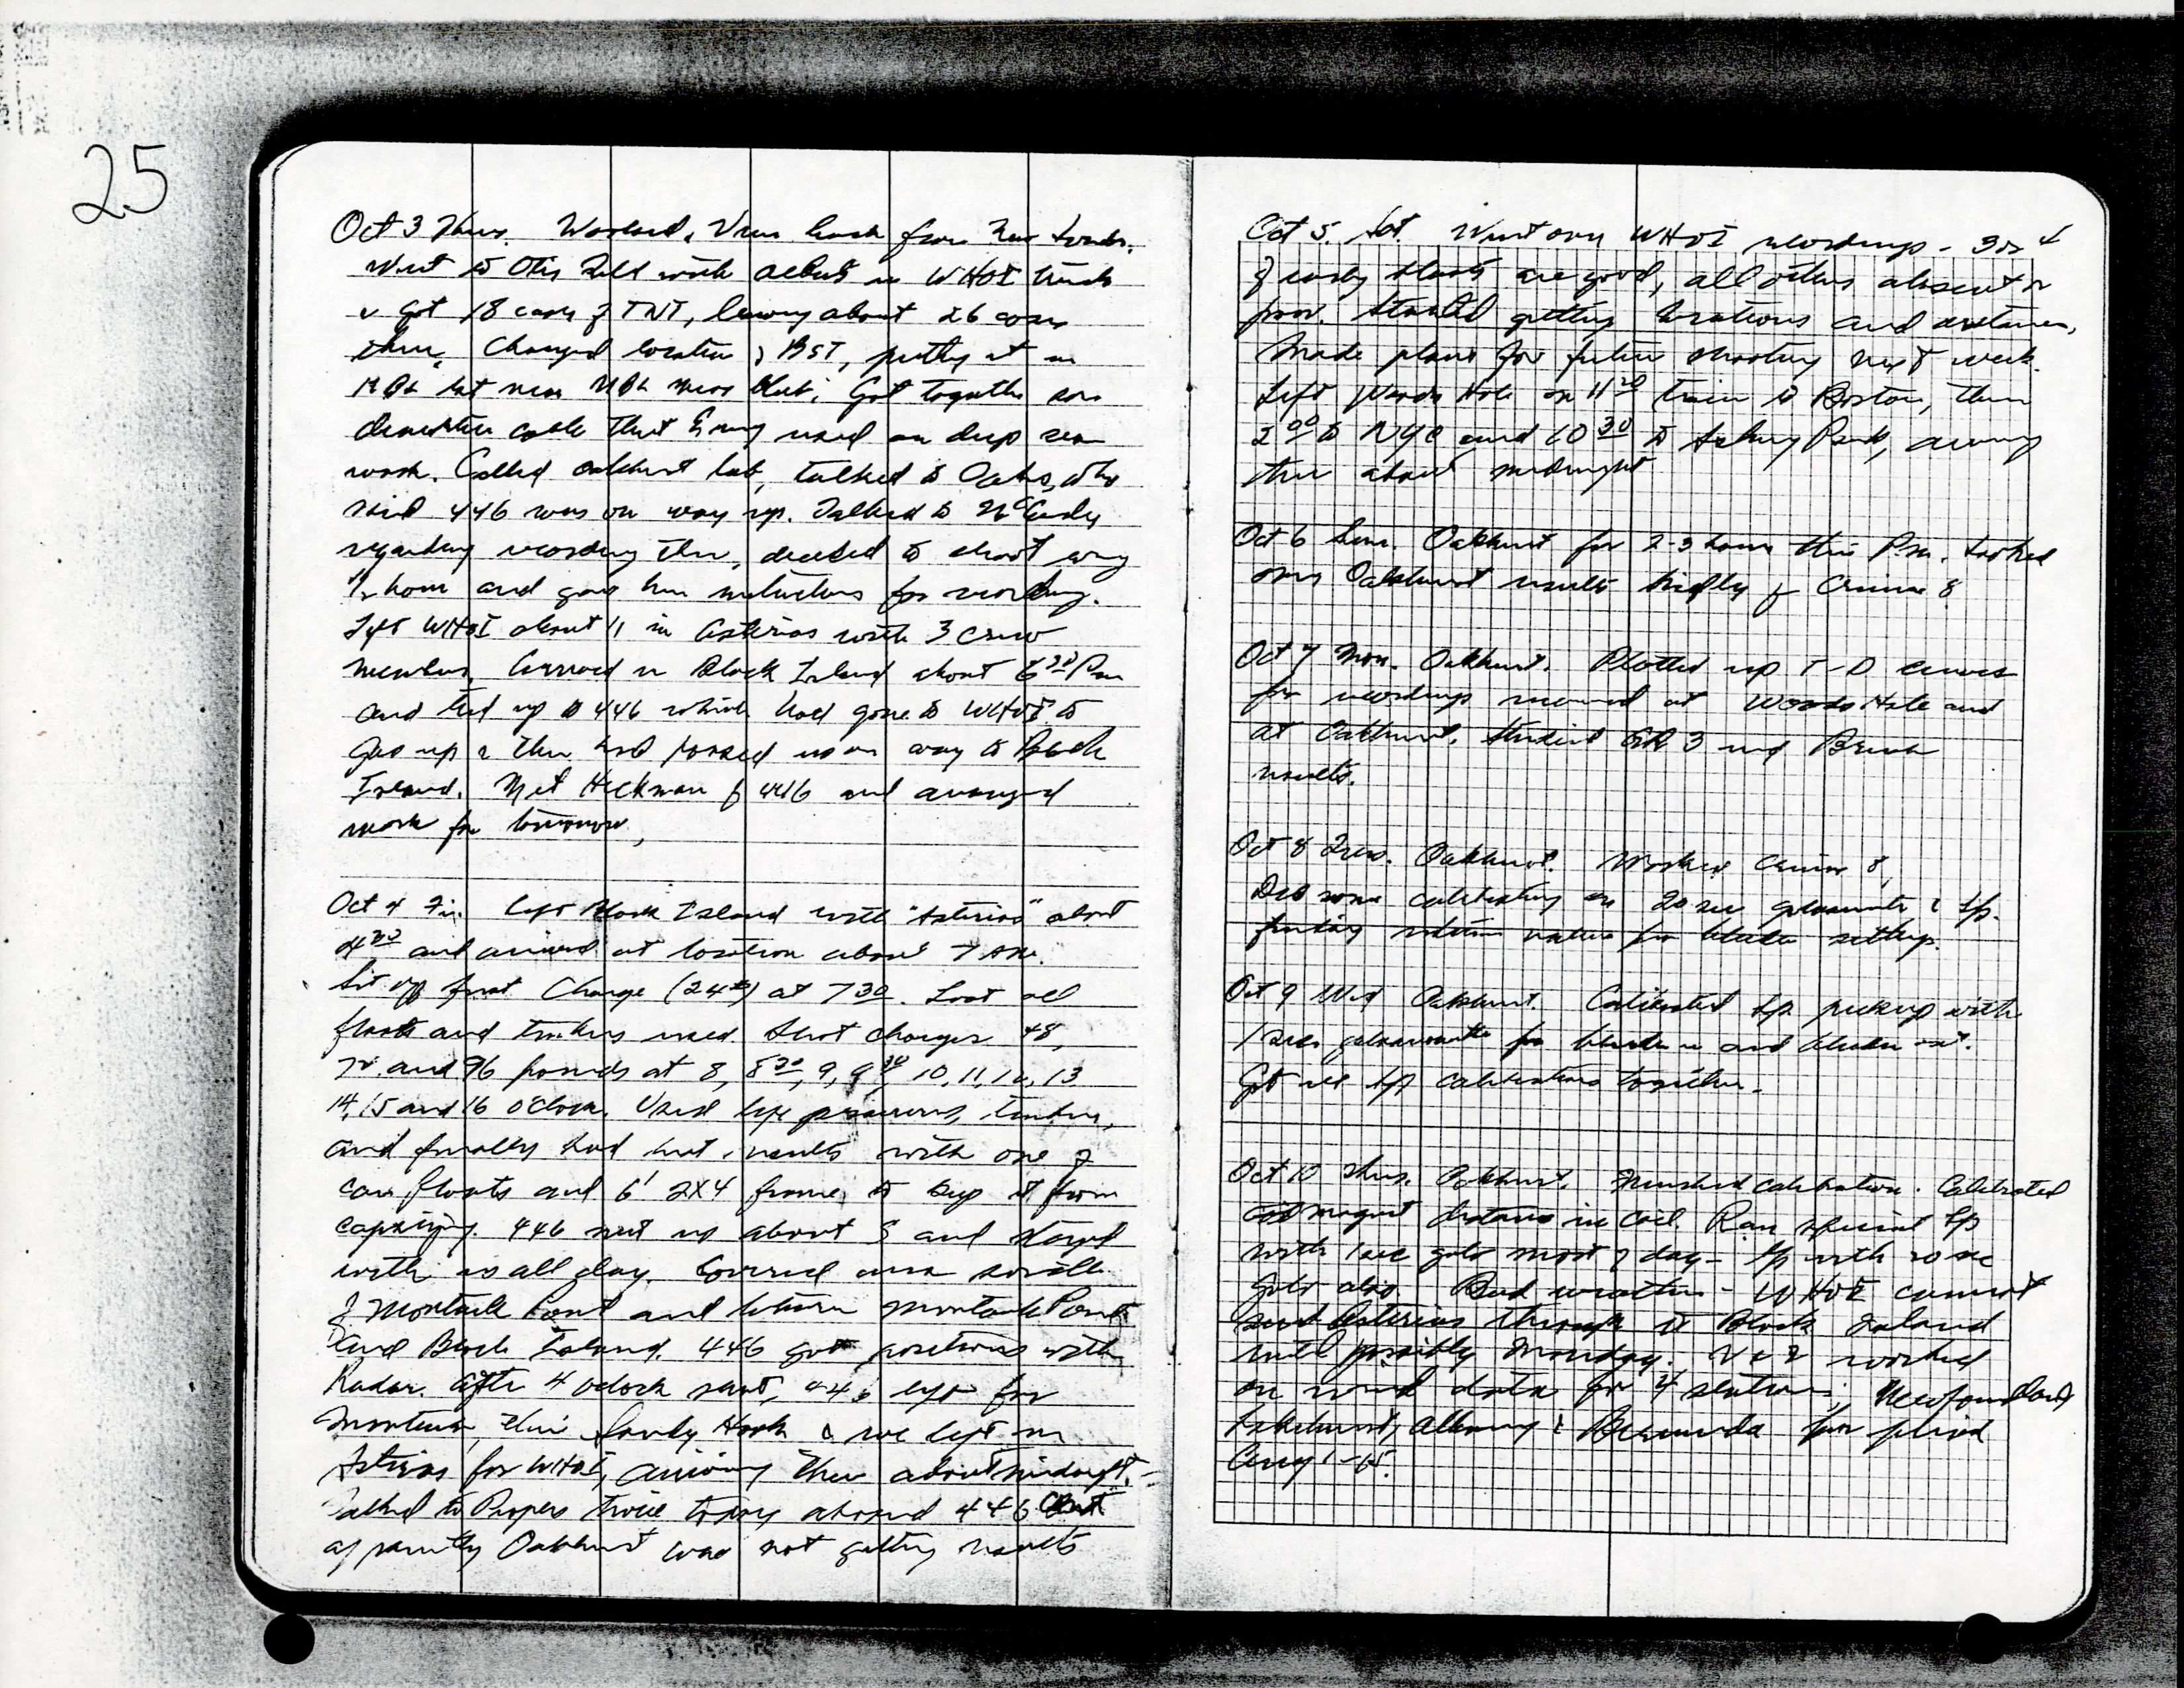 25
Oct 3 Thurs. Worzel & Vine back from New London.
Went to Otis Field with Alberts in WHOI truck
& got 18 cases of TNT, leaving about 26 cases
there. Changed location of BST, putting it in
near MBL mess club. Got together some
cable that Ewing used on deep sea
work. Called Oakhurst lab, talked to Oaks, who
said 446 was on way up. Talked to McCurdy
regarding recording there, decided to shoot every
1/2 hour and gave him instructions for recording.
Left WHOI about 11 in Asterias with 3 crew
members. Arrived in Block Island about 6 30 PM
and tied up to 446 which had gone to WHOI to
gas up & then had passed us on way to Block
Island. Met Heckman of 446 and arranged
work for tomorrow.
Oct 4 Fri. Left Block Island with "Asterias" about
4 30 and arrived at location about 7 AM.
Set off first charge (24#) at 7 30. Lost all
floats and used. Shot charges 48,
72 and 96 pounds at 8, 8 30, 9, 9 30, 10, 11, 12, 13
14, 15 and 16 oclock. Used life preservers,
and finally had best results with one of
can floats and 6' 2X4 frame to keep it from
capsizing. 446 met us about 8 and stayed
with us all day. Covered area south
of Montauk Point and between Montauk Point
and Block Island. 446 got positions with
Radar. After 4 oclock shot, 446 left for
Montauk, then Sandy Hook & we left in
Asterias for WHOI, arriving there about midnight.
Talked to Propers twice today aboard 446 but
apparently Oakhurst was not getting results
Oct 5. Sat. Went over WHOI recordings - 3 or 4
of early shots are good, all others absent or
poor. Started getting locations and distances.
Made plans for future shooting next week.
Left Woods Hole on 11 20 train to Boston, then
2 00 to NYC and 10 30 to Asbury Park, arriving
there about midnight
Oct 6 Sun. Oakhurst for 2-3 hours this P.M. Looked
over Oakhurst results briefly of Cruise 8
Oct 7 Mon. Oakhurst. Plotted up T-D curves
for recordings received at Woods Hole and
at Oakhurst. Studied 3 and
results.
Oct 8 Tues. Oakhurst. Worked Cruise 8.
Did some calibrating on 20 sec galvanometer & Sp.
finding values for settings.
Oct 9 Wed Oakhurst. Calibrated Sp. pickup with
1 sec galvanometer for in and out.
Got all Sp calibrations together.
Oct 10 Thurs. Oakhurst. Finished calibration. Calibrated
magnet distance in coil. Ran special Sp
with 1 sec galv most of day - Sp with 20 sec
galv also. Bad weather - WHOI cannot
send Asterias through to Block Island
until possibly Monday. V & I worked
on wind data for 4 stations: Newfoundland
Lakehurst, Albany & Bermuda for period
Aug 1-15.